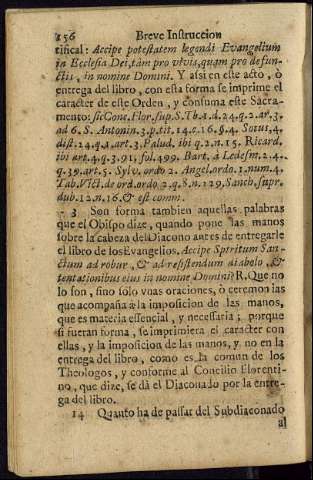 156 Breve Instruccion
tifical: Accipe potestatem legendi Evangelium
in Ecclesia Dei, tàm pro vivis, quam pro defun-
ctis, in nomine Domini. Y assi en este acto, ò
entrega del libro, con esta forma se imprime el
caracter de este Orden, y consuma este Sacra-
mento: sic Conc. Flor. sup. S. Th. 1. d. 24. q. 2. ar. 3.
ad 6. S. Antonin. 3. p. tit. 14. c. 16. §. 4. Sotus, 4.
dist. 24. q. 1. art. 3. Palud. ibi q. 2. n. 15. Ricard.
ibi art. 4. q. 3. 91. fol. 499. Bart. à Ledesm. 2. 4.
q. 39. art. 5. Sylv. ordo 2. Angel. ordo. 1. num. 4.
Tab. Vict. de ord. ordo 2. q. S. n. 129. Sanch. supr.
dub. 12. n. 16. & est comm.
3 Son forma tambien aquellas palabras
que el Obispo dize, quando pone las manos
sobre la cabeza del Diacono antes de entregarle
el libro de los Evangelios. Accipe Spiritum San-
ctum ad robur, & ad resistendum diabolo, &
tentationibus eius in nomine Domini? R. Que no
lo son, sino solo vnas oraciones, ò ceremonias
que acompaña à la imposicion de las manos,
que es materia essencial, y necessaria; porque
si fueran forma, se imprimiera el caracter con
ellas, y la imposicion de las manos, y no en la
entrega del libro, como es la comun de los
Theologos, y conforme al Concilio Florenti-
no, que dize, se dà el Diaconado por la entre-
ga del libro.
14 Quanto ha de passar del Subdiaconado
al